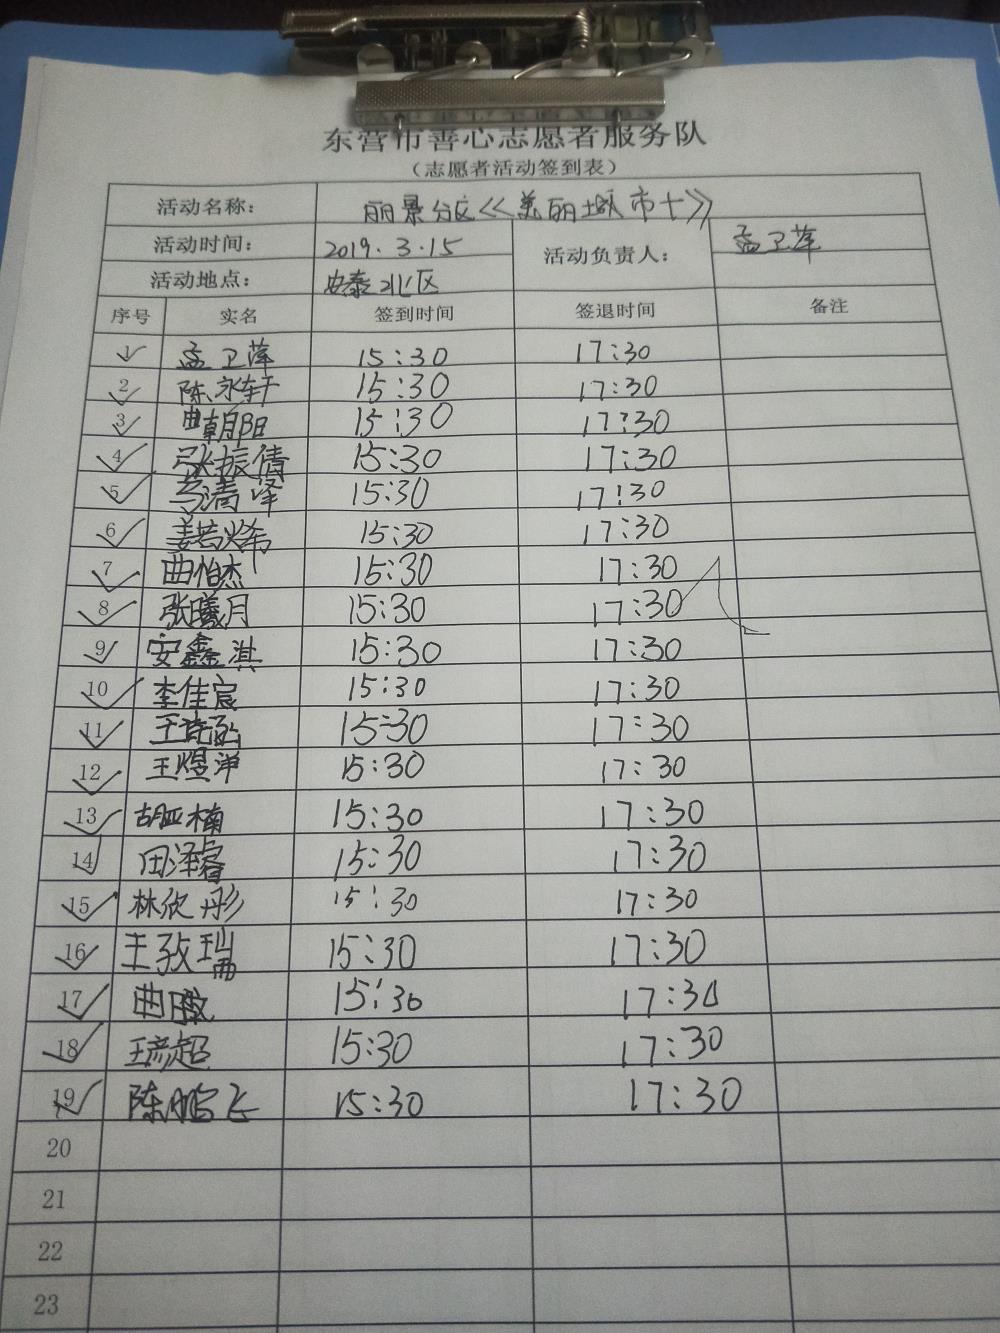 东营市善心志愿者服务队
（志愿者活动签到表）
活动名称： 丽景分区《美丽城市十》
活动时间： 2019.3.15 活动负责人： 孟卫萍
活动地点： 安泰北区
序号 实名 签到时间 签退时间 备注
1 孟卫萍 15:30 17:30
2 陈永轩 15:30 17:30
3 曲朝阳 15:30 17:30
4 张振倩 15:30 17:30
5 马清峰 15:30 17:30
6 姜若烯 15:30 17:30
7 曲怡杰 15:30 17:30
8 张曦月 15:30 17:30
9 安鑫淇 15:30 17:30
10 李佳宸 15:30 17:30
11 15:30 17:30
12 王煜洋 15:30 17:30
13 胡亚楠 15:30 17:30
14 田泽睿 15:30 17:30
15 林欣彤 15:30 17:30
16 王孜瑞 15:30 17:30
17 15:30 17:30
18 王彦超 15:30 17:30
19 陈鹏飞 15:30 17:30
20
21
22
23